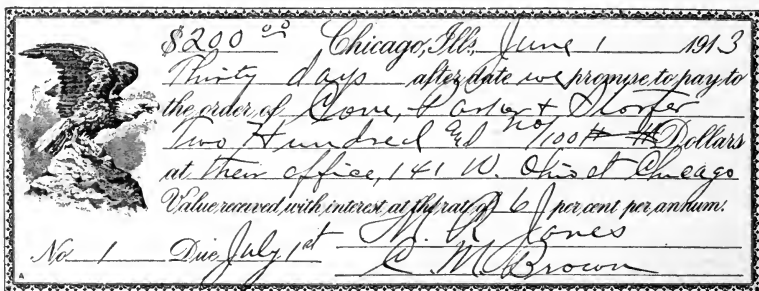 $200 00 Chicago, Ills, June 1 1913
Thirty days after date we promise to pay to
the order of &
Two Hundred and no/100 Dollars
at their office, 141 W. Ohio st Chicago
Value received with interest at the rate of 6 per cent per annum.
M. R. Jones
No 1 Due July 1st C. M. Brown
A